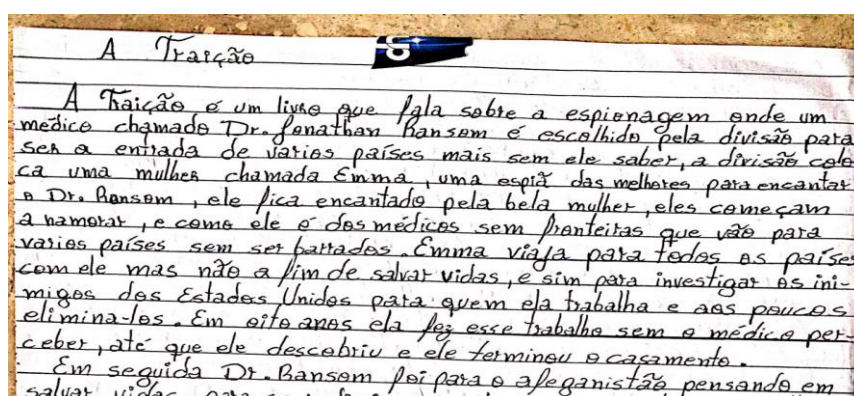 A Traição
A Traição é um livro que fala sobre a espionagem onde um
médico chamado Dr. Jonathan Ransom é escolhido pela divisão para
ser a entrada de varios países mais sem ele saber, a divisão colo
ca uma mulher chamada Emma, uma espiã das melhores para encantar
o Dr. Ransom, ele fica encantado pela bela mulher, eles começam
a namorar, e como ele é dos médicos sem fronteiras que vão para
varios países sem ser barrados. Emma viaja para todos os países
com ele mas não a fim de salvar vidas, e sim para investigar os ini-
migos dos Estados Unidos para quem ela trabalha e aos poucos
elimina-los. Em oito anos ela fez esse trabalho sem o médico per-
ceber, até que ele descobriu e ele terminou o casamento.
Em seguida Dr. Ransom foi para o afeganistão pensando em
salvar vidas para